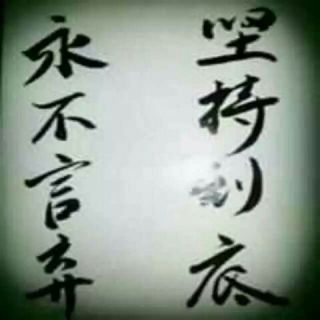 坚持到底
永不言弃